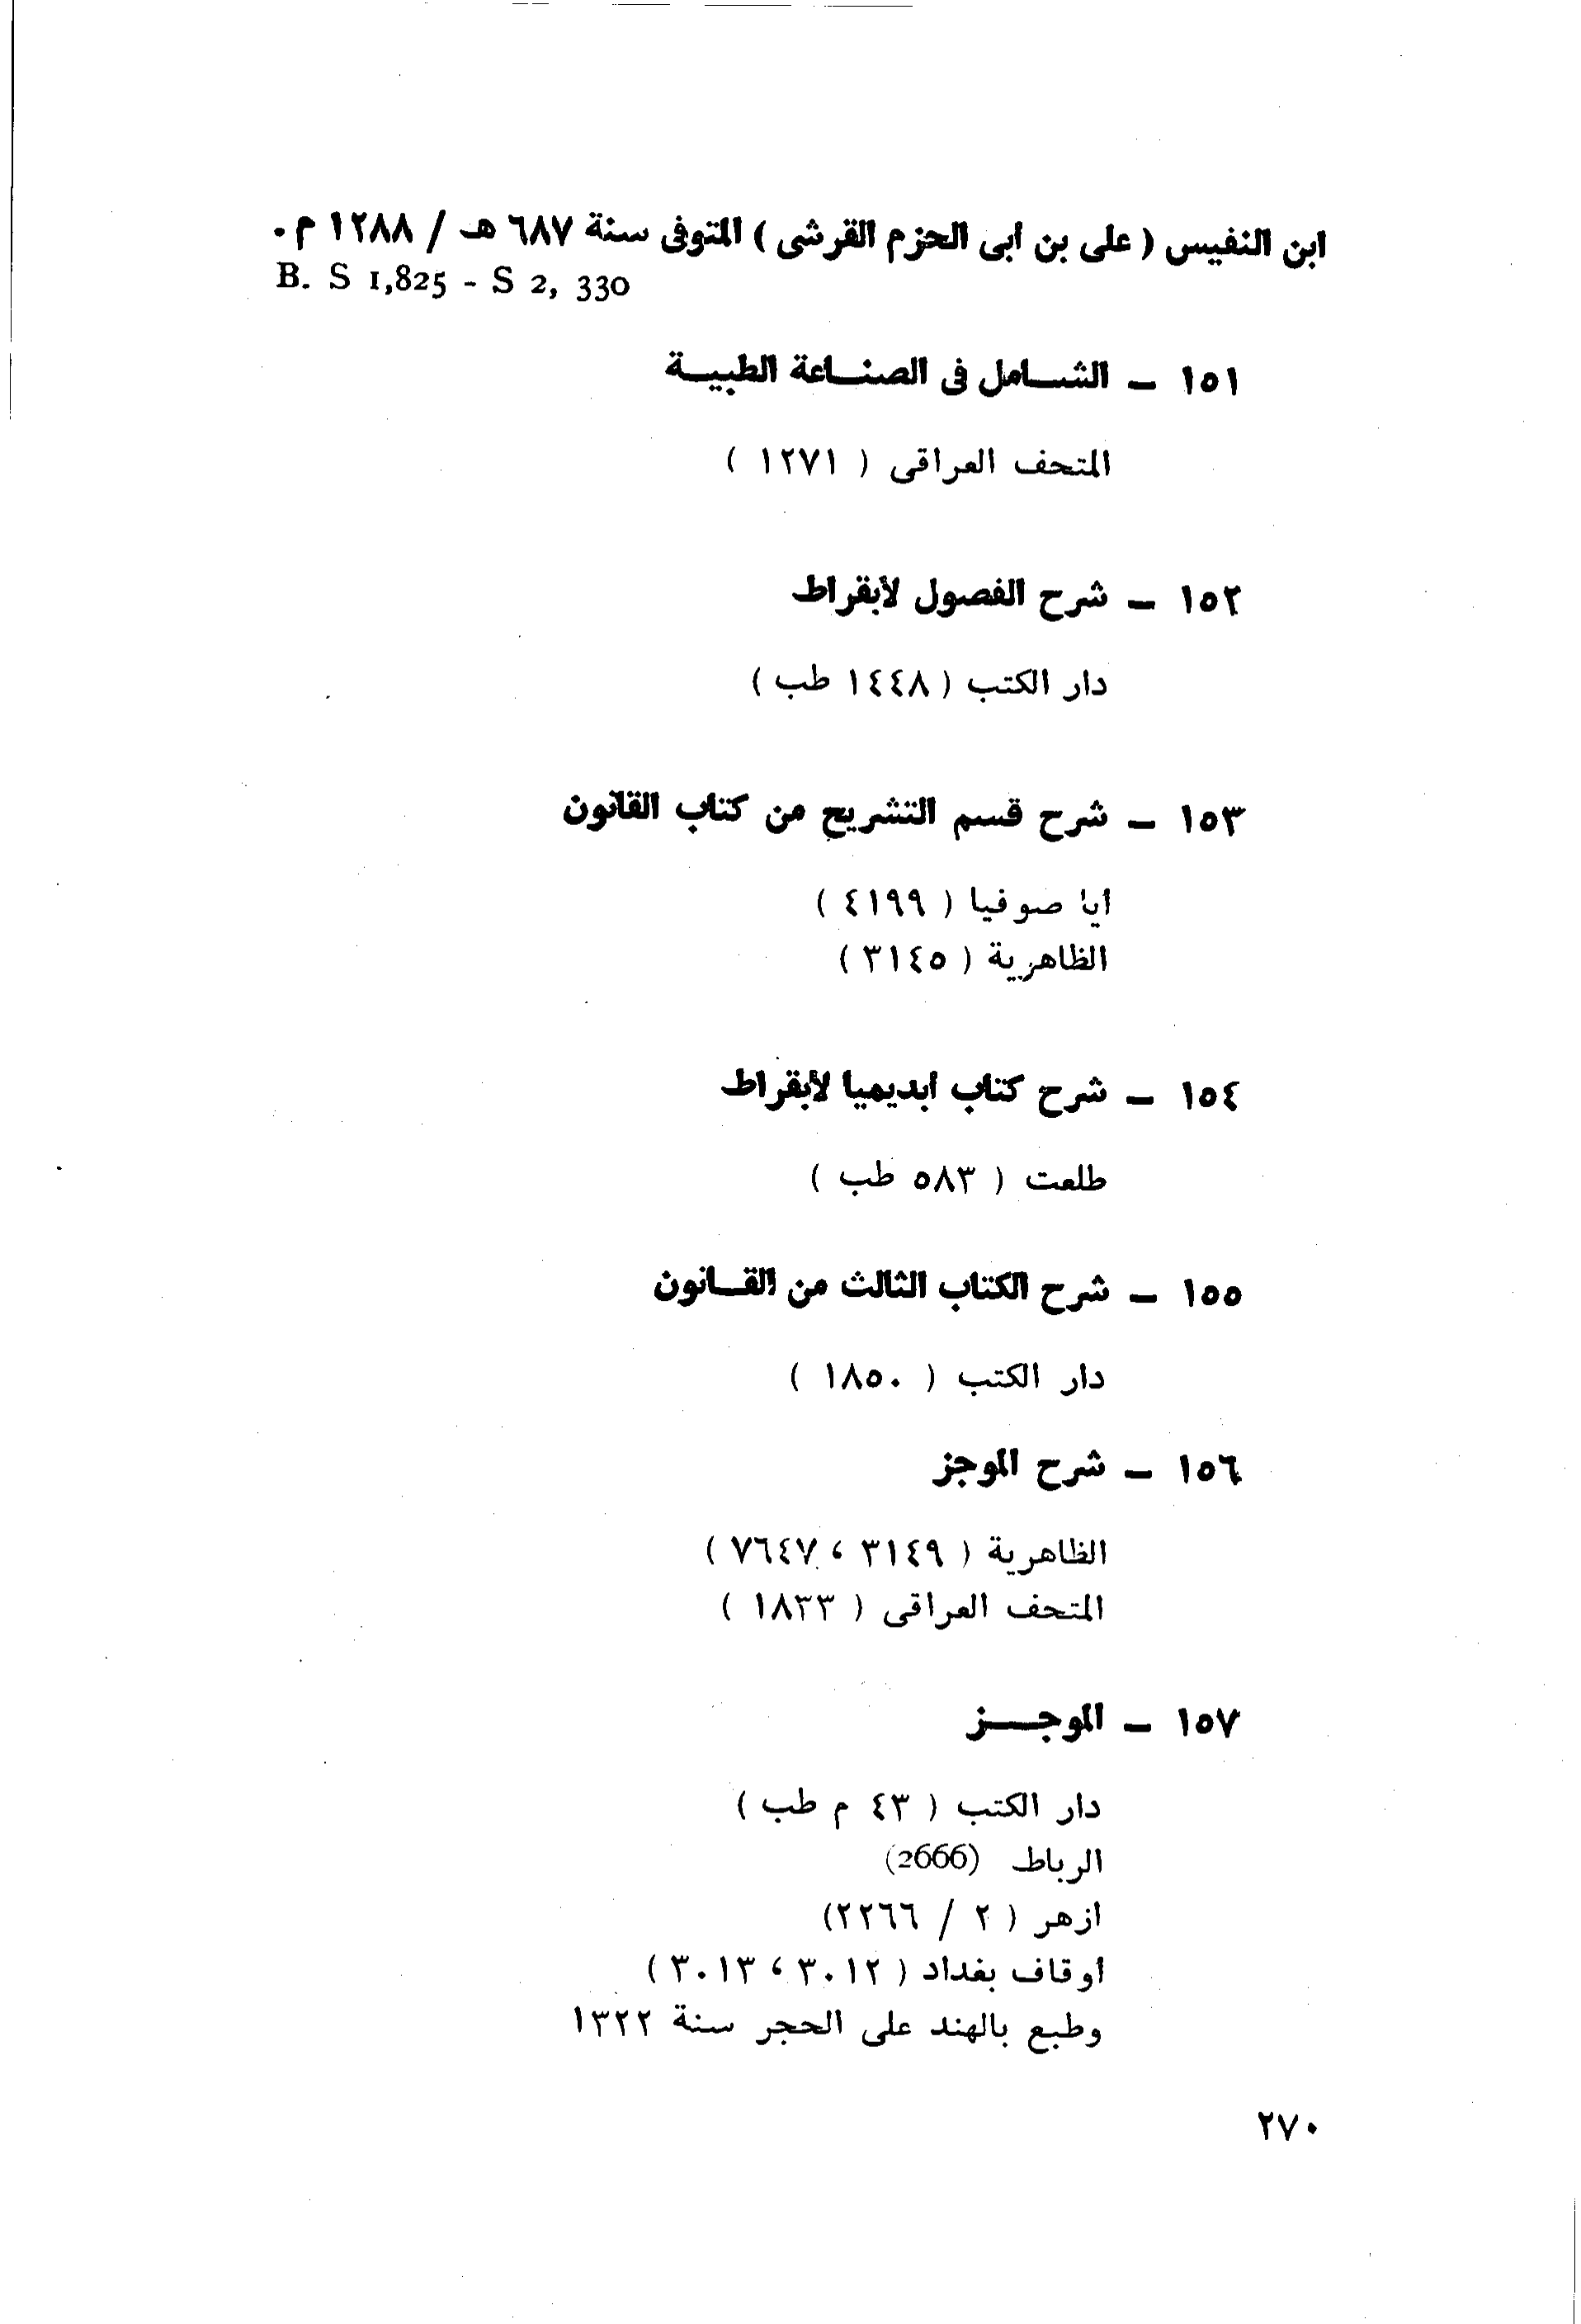 ابن النفيس ( على بن ابى الحزم القرشى ) المتوفى سنة ٦٨٧ هـ / ١٢٨٨ م .
B. S 1,825 - S 2, 330
١٥١ – الشـــامل فى الصنـــاعة الطبيـــة
المتحف العراقى ( ١٢٧١ )
١٥٢ – شرح الفصول لأبقراط
دار الكتب ( ١٤٤٨ طب )
١٥٣ – شرح قسم التشريح من كتاب القانون
أيا صوفيا ( ٤١٩٩ )
الظاهرية ( ٣١٤٥ )
١٥٤ – شرح كتاب ابديميا لأبقراط
طلعت ( ٥٨٣ طب )
١٥٥ – شرح الكتاب الثالث من القـــانون
دار الكتب ( ١٨٥٠ )
١٥٦ – شرح الموجز
الظاهرية ( ٣١٤٩ ، ٧٦٤٧ )
المتحف العراقى ( ١٨٣٣ )
١٥٧ – الموجـــــز
دار الكتب ( ٤٣ م طب )
الرباط (2666)
ازهر ( ٢ / ٢٢٦٦)
اوقاف بغداد ( ٣٠١٢ ، ٣٠١٣ )
وطبع بالهند على الحجر سنة ١٣٢٢
٢٧٠